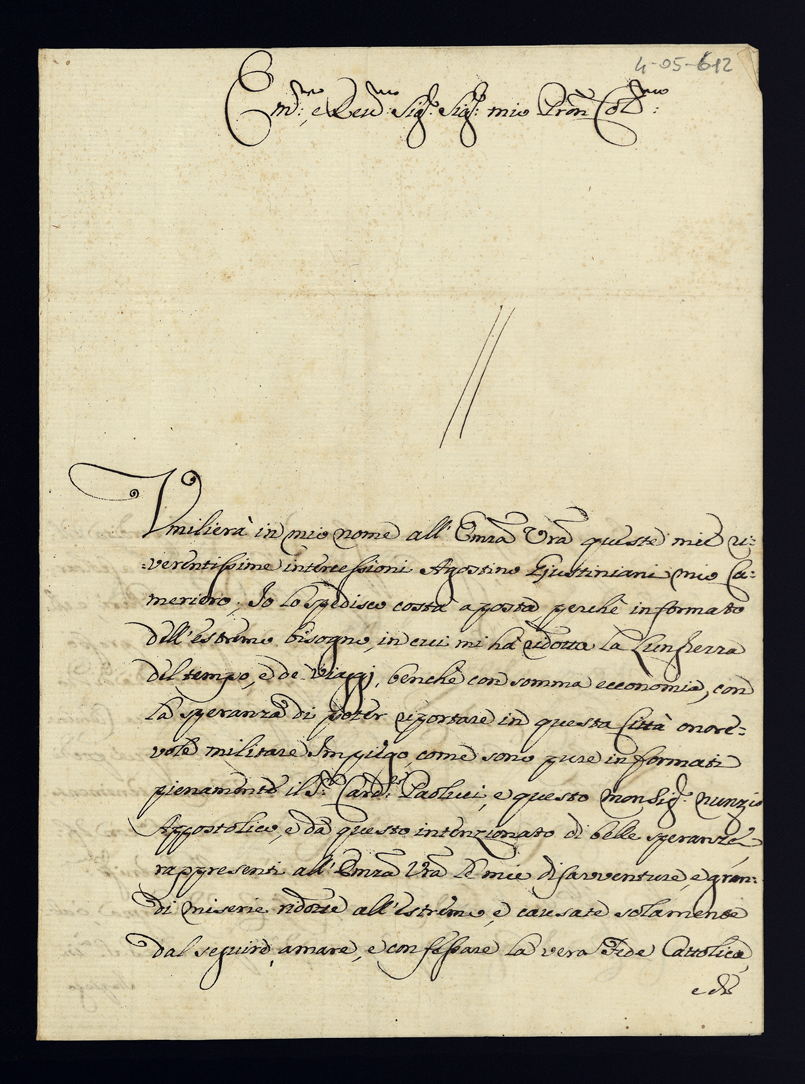 4-05-612
Em.mo e Rev.mo Sig.r Sig.r mio Pron Col.mo
Umilierà in mio nome all' Emza Vra queste mie ri-
-verentissime intercessioni Agostino Giustiniani mio Ca-
meriero; Io lo spedisco costà a posta perchè informato
dell'estremo bisogno, in cui mi hà ridotto la Lunghezza
del tempo, e de Viaggi, benchè con somma economia, con
la speranza di poter riportare in questa Città onore-
vole militare Impiego, come sono pure informati
pienamente il S.r Card.l Paolucci, e questo Monsig.r Nunzio
Appostolico, e da questo intenzionato di belle speranze,
rappresenti all' Emza Vra le mie disavventure, e gran-
di miserie ridotte all'estremo, e causate solamente
dal seguire, amare, e confessare la vera Fede Cattolica,